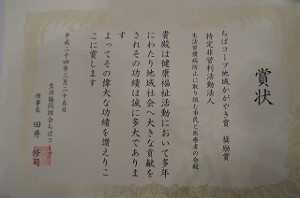 賞状
ちばコープ地域かがやき賞 奨励賞
特定非営利活動法人
生活習慣病防止に取り組む市民と医療者の会殿
貴殿は健康福祉活動において多年
にわたり地域社会へ大きな貢献を
されその功績は誠に多大であります
よってその偉大な功績を讃えりこ
こに賞します
平成二十四年三月二十五日
生活協同組合ちばコープ
理事長 田井 修司